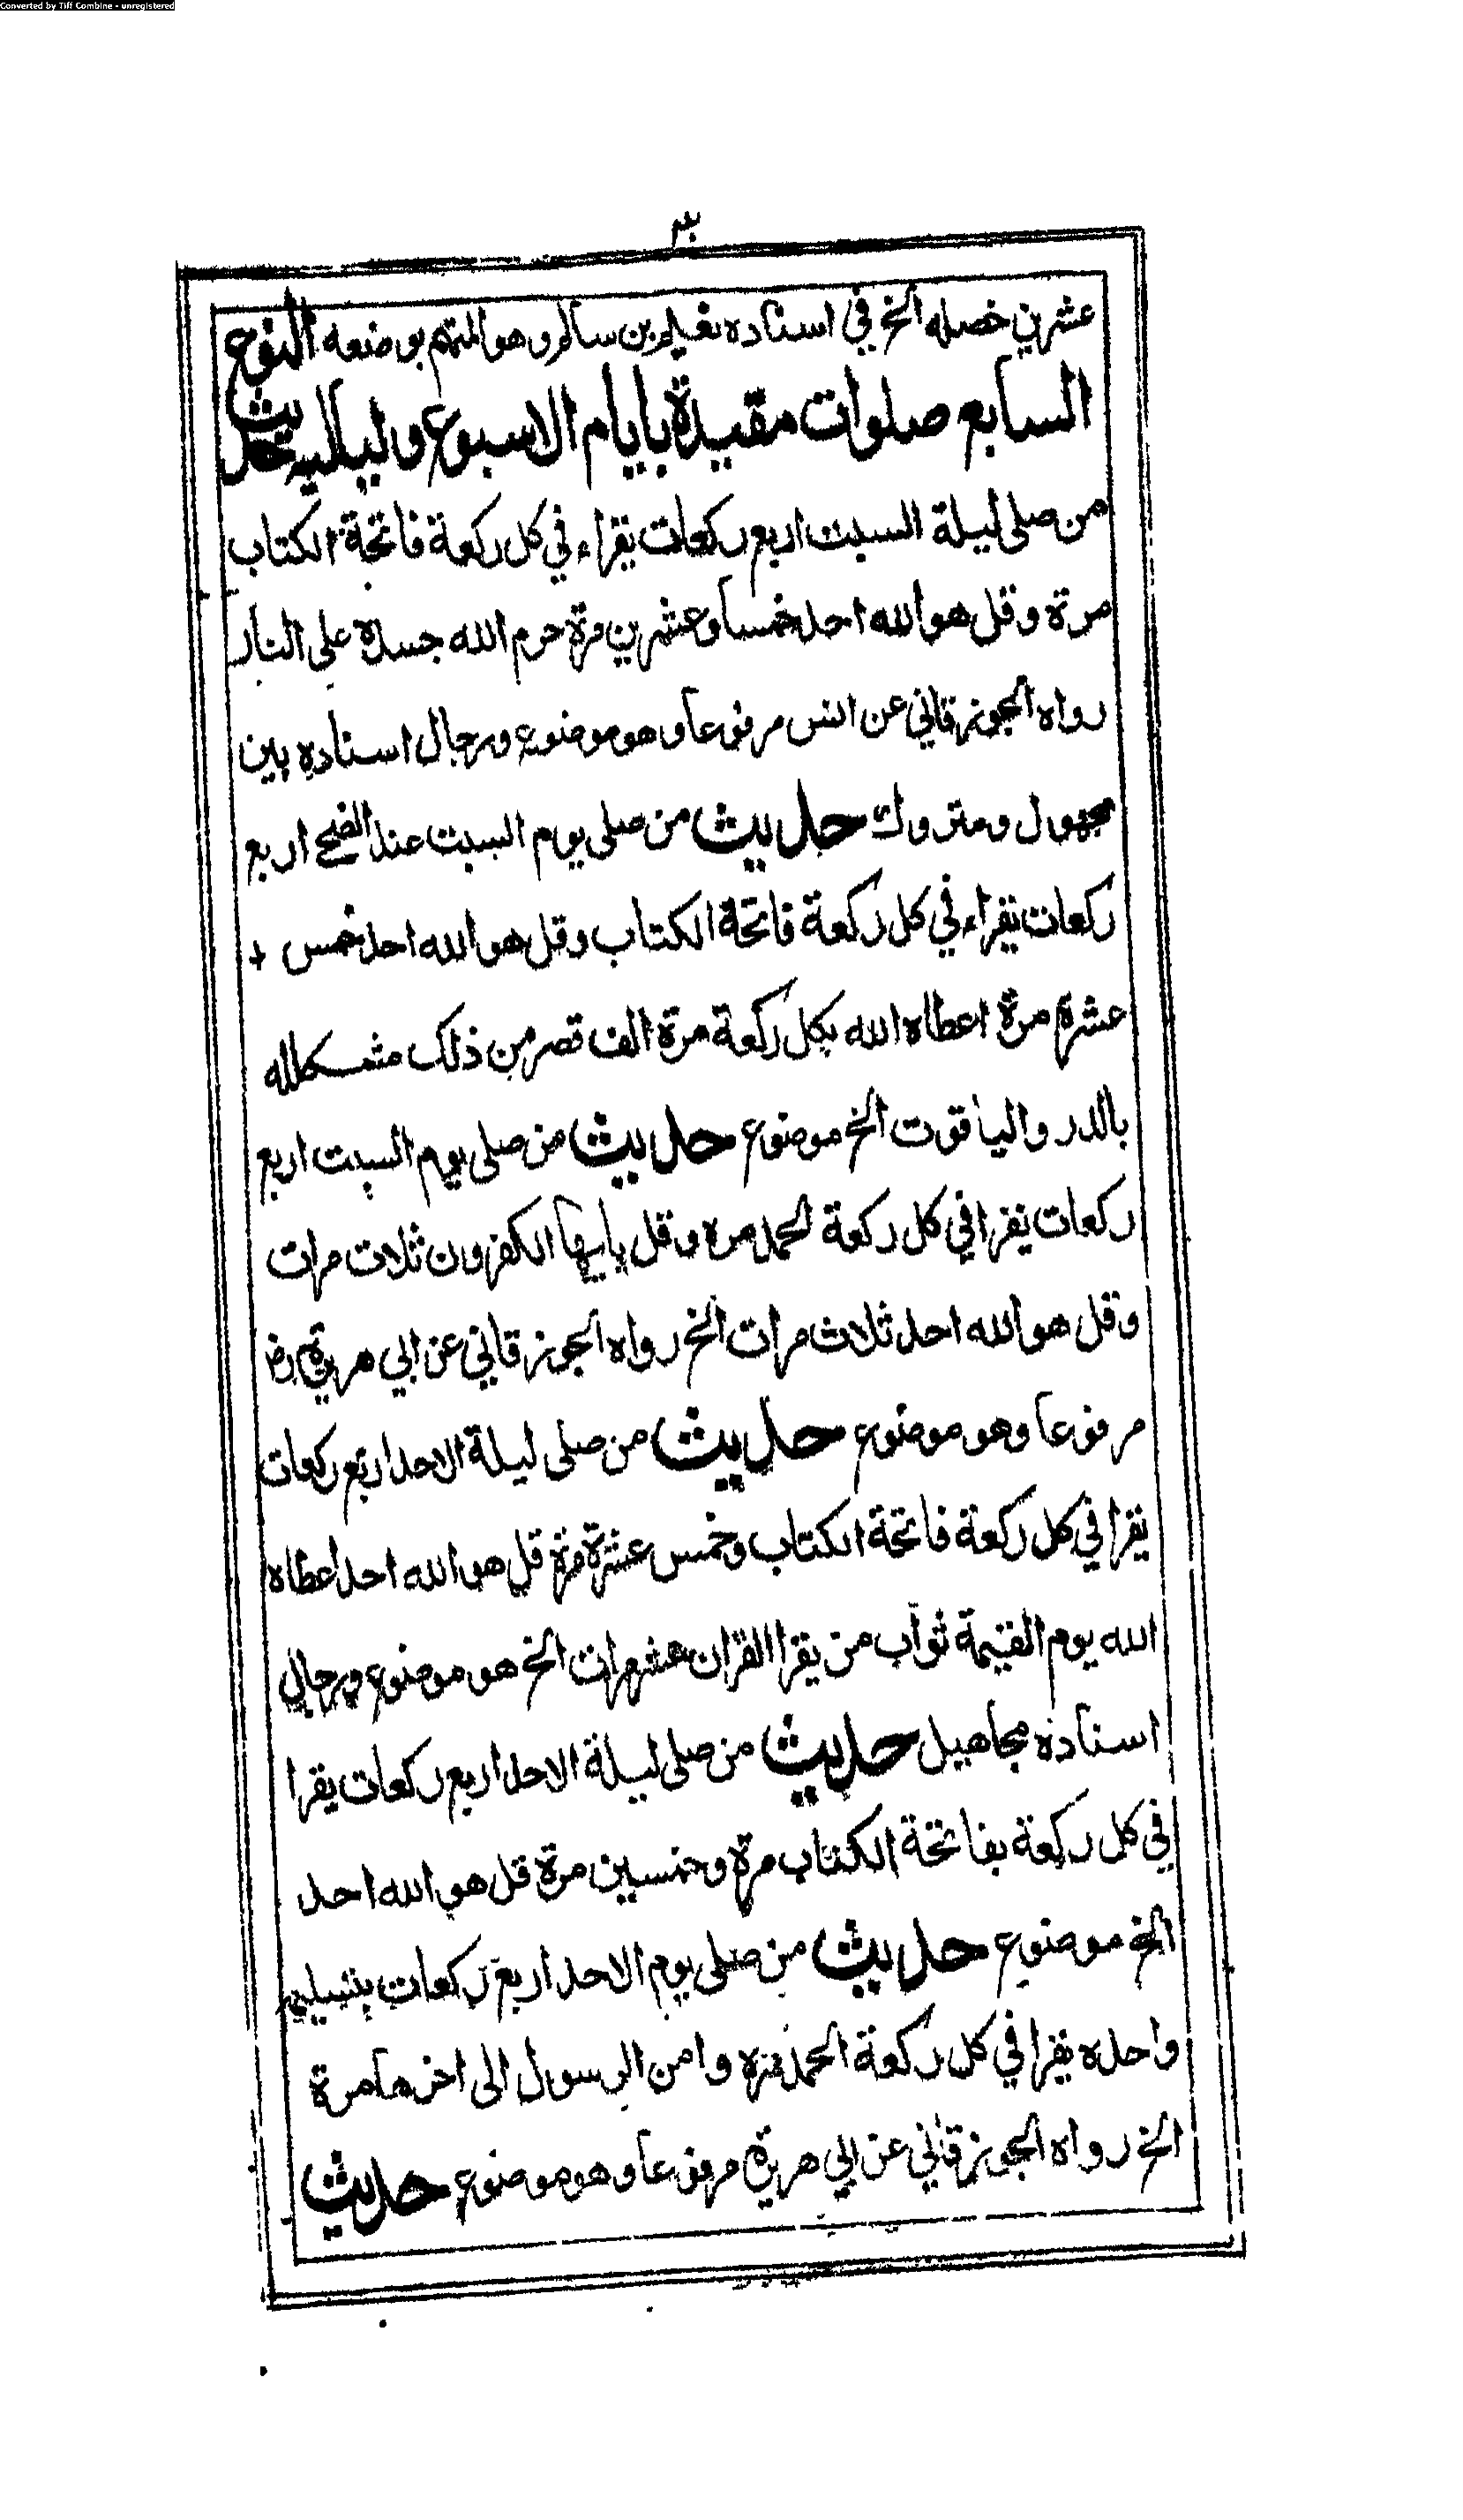 Converted by Tiff Combine - unregistered
٣
عشرين خصله الخ في اسناده نعيم بن سالم وهو المتهم بوضعه النوع
السابع صلوات مقيدة بايام الاسبوع ولياليه حديث
من صلى ليلة السبت اربع ركعات يقراء في كل ركعة فاتحة الكتاب
مرة وقل هو الله احد خمسا وعشرين مرة حرم الله جسده على النار
رواه الجوزقاني عن انس مرفوعا وهو موضوع ورجال اسناده بين
مجهول ومتروك حديث من صلى يوم السبت عند الضحى اربع
ركعات يقراء في كل ركعة فاتحة الكتاب وقل هو الله احد خمس
عشرة مرة اعطاه الله بكل ركعة مرة الف قصر من ذلك مشكلله
بالدر والياقوت الخ موضوع حديث من صلى يوم السبت اربع
ركعات يقرا في كل ركعة الحمد مره وقل يايها الكفرون ثلاث مرات
وقل هو الله احد ثلاث مرات الخ رواه الجوزقاني عن ابي هريرة رض
مرفوعا وهو موضوع حديث من صلى ليلة الاحد اربع ركعات
يقرا في كل ركعة فاتحة الكتاب وخمس عشرة مرة قل هو الله احد اعطاه
الله يوم القيمة ثواب من يقرا القران عشر مرات الخ هو موضوع ورجال
اسناده مجاهيل حديث من صلى ليلة الاحد اربع ركعات يقرا
في كل ركعة بفاتحة الكتاب مرة وخمسين مرة قل هو الله احد
الخ موضوع حديث من صلى يوم الاحد اربع ركعات بتسليم
واحده يقرا في كل ركعة الحمد مره وامن الرسول الى اخرها مرة
الخ رواه الجوزقاني عن ابي هريرة مرفوعا وهو موضوع حديث